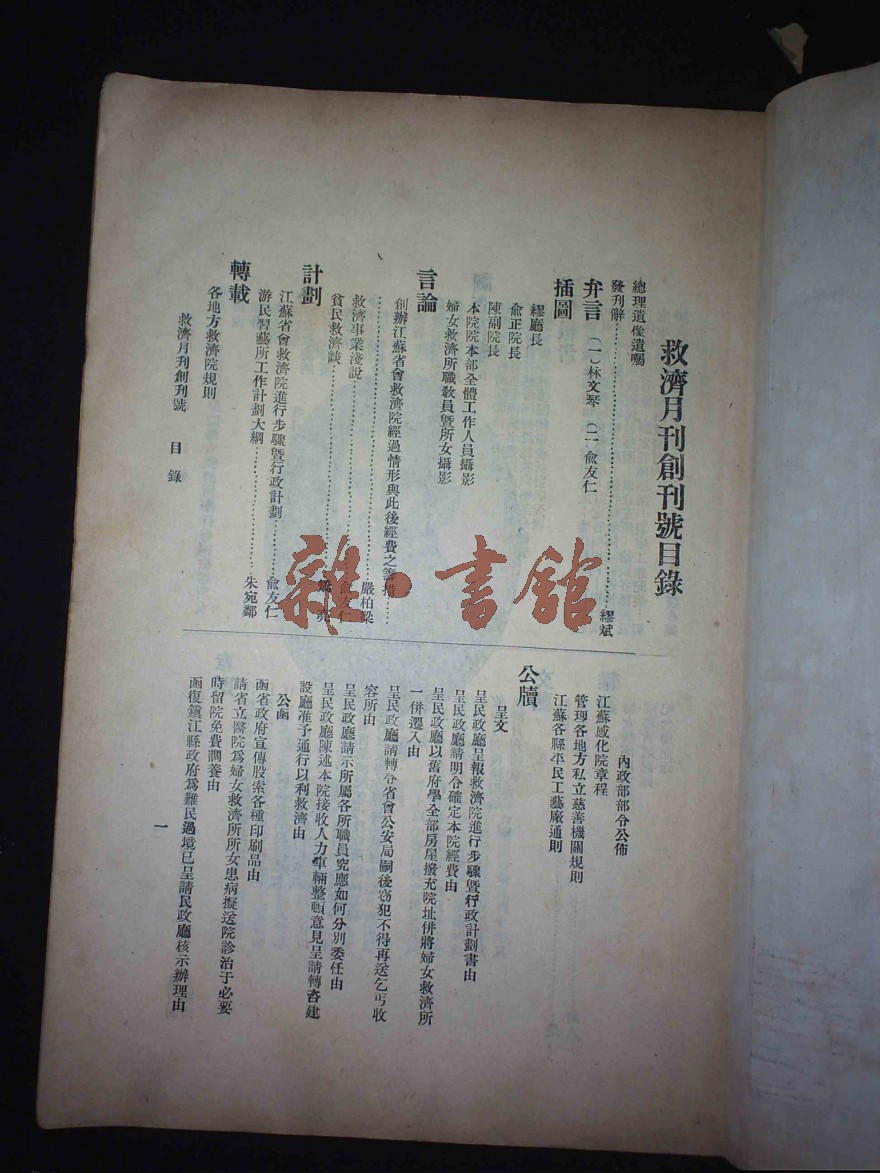 救濟月刊創刊號目錄
總理遺像遺囑
發刊辭……………………繆斌
弁言 (一)林文琴 (二)俞友仁
插圖
繆廳長
俞正院長
陳副院長
本院院本部全體工作人員攝影
婦女救濟所職教員暨所女攝影
言論
創辦江蘇省會救濟院經過情形與此後經費之籌措……
……………………嚴柏梁
救濟事業淺說……………………俞友仁
貧民救濟談……………………
計劃
江蘇省會救濟院進行步驟暨行政計劃……俞友仁
游民習藝所工作計劃大綱……………………朱宛鄰
轉載
各地方救濟院規則
內政部部令公佈
江蘇感化院章程
管理各地方私立慈善機關規則
江蘇各縣平民工藝廠通則
公牘
呈文
呈民政廳呈報救濟院進行步驟暨行政計劃書由
呈民政廳請明令確定本院經費由
呈民政廳以舊府學全部房屋撥充院址併將婦女救濟所
一併遷入由
呈民政廳請轉令省會公安局嗣後竊犯不得再送乞丐收
容所由
呈民政廳請示所屬各所職員究應如何分別委任由
呈民政廳陳述本院接收人力車輛整頓意見呈請轉咨建
設廳准予通行以利救濟由
公函
函省政府宣傳股索各種印刷品由
請省立醫院爲婦女救濟所所女患病擬送院診治于必要
時留院免費調養由
函復鎮江縣政府爲難民過境已呈請民政廳核示辦理由
救濟月刊創刊號 目錄
一
雜·書館